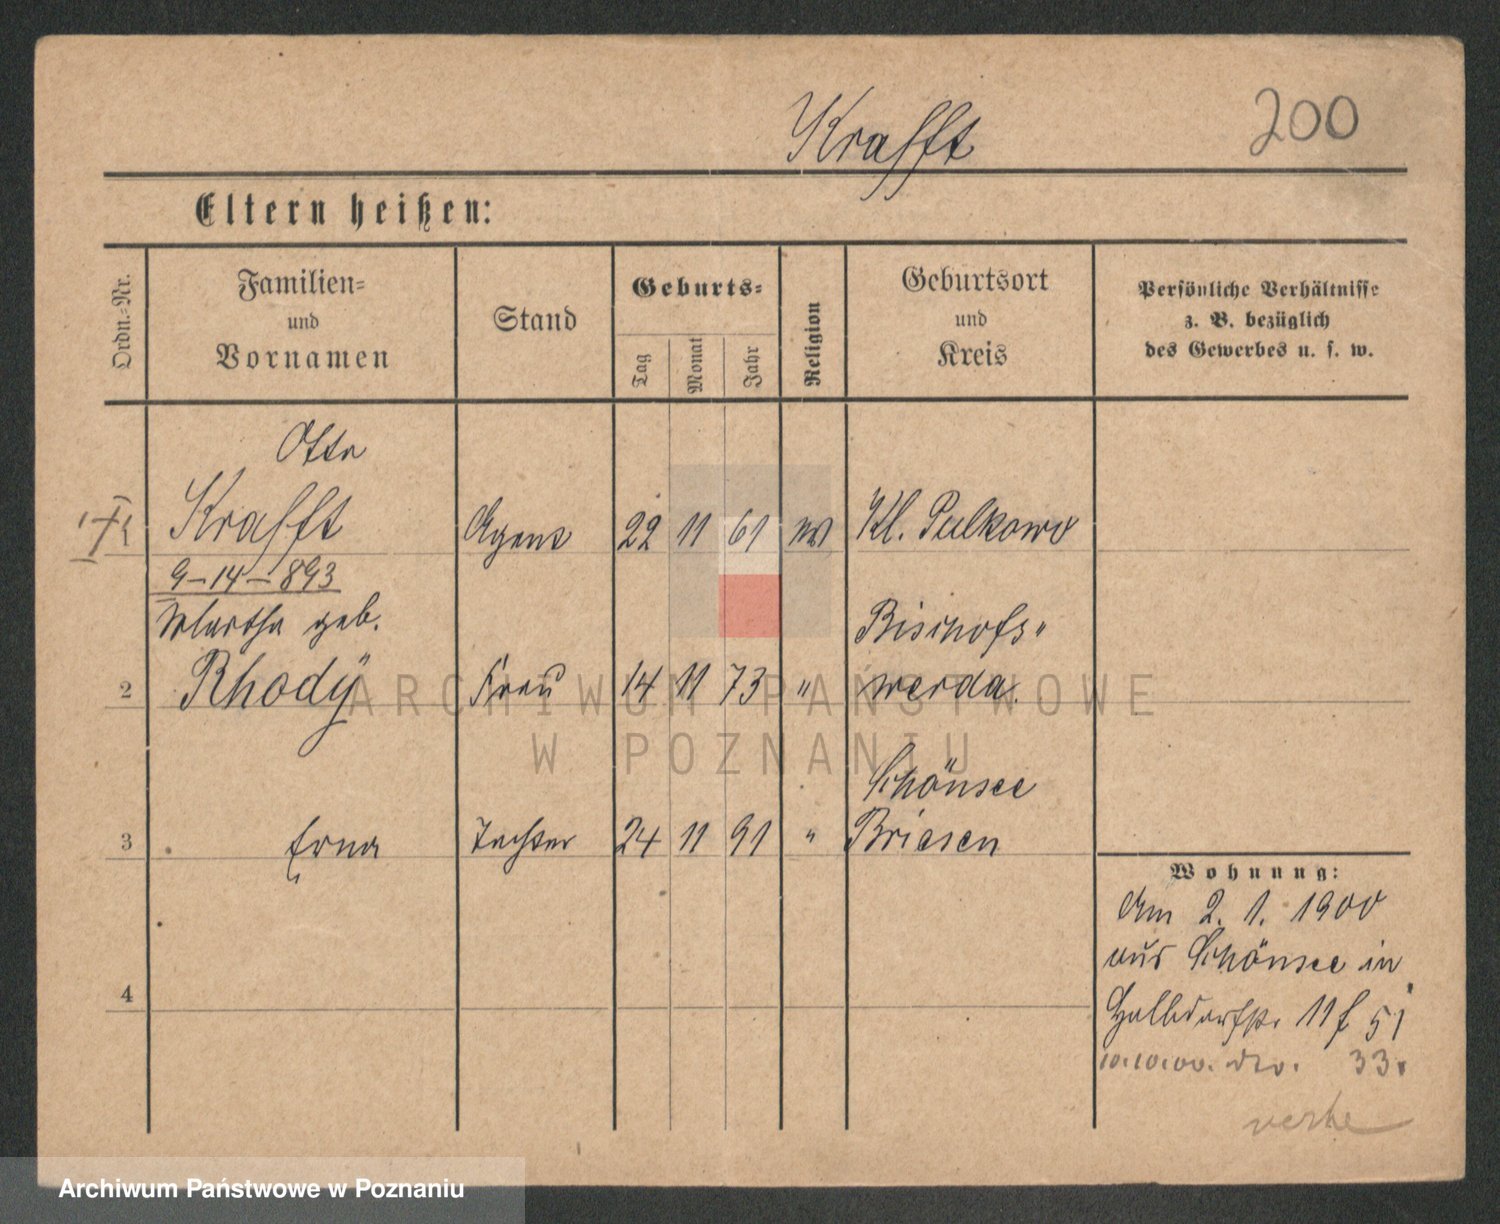 Krafft
200
Eltern heißen:
Ordn.-Nr.
Familien-
und
Vornamen
Stand
Geburts-
Tag
Monat
Jahr
Religion
Geburtsort
und
Kreis
Persönliche Verhältnisse
z. B. bezüglich
des Gewerbes u. s. w.
Otto
1 Krafft Agent 22 11 61 Kl. Pulkowo
9-14-893
Martha geb. Bischofs-
2 Rhody Frau 14 11 73 " werda
Schönsee
3 Erna Tochter 24 11 91 " Briesen
Wohnung:
Am 2. 1. 1900
aus Schönsee in
Halbdorfstr. 11 f 5
10.10.00. 33.
4
ARCHIWUM PAŃSTWOWE
W POZNANIU
Archiwum Państwowe w Poznaniu